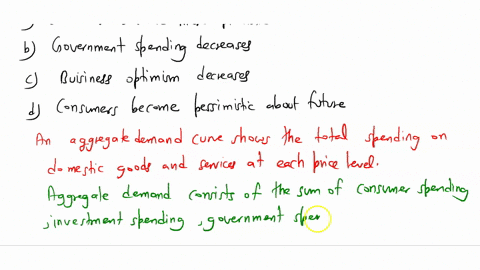 b) Government spending decreases
c) Buisiness optimism decreases
d) Consumers become pessimistic about future
An aggregate demand curve shows the total spending on
domestic goods and services at each price level.
Aggregate demand consists of the sum of consumer spending
, investment spending , government spen